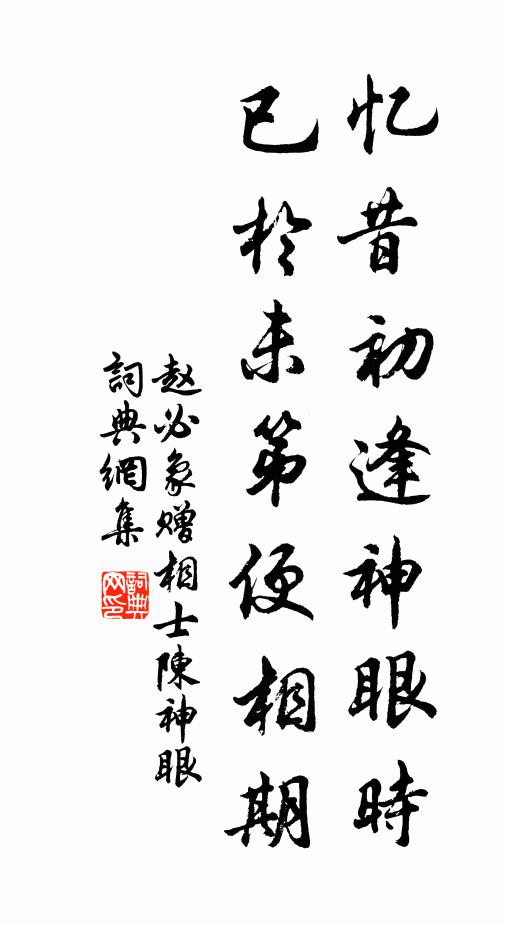 忆昔初逢神眼時
已於未第便相期
赵必象赠相士陳神眼
詞典網集
詞典网印